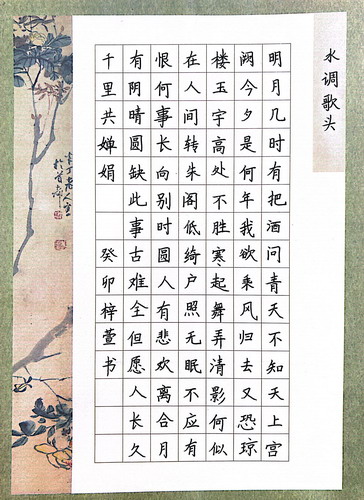 水调歌头
明月几时有把酒问青天不知天上宫
阙今夕是何年我欲乘风归去又恐琼
楼玉宇高处不胜寒起舞弄清影何似
在人间转朱阁低绮户照无眠不应有
恨何事长向别时圆人有悲欢离合月
有阴晴圆缺此事古难全但愿人长久
千里共婵娟 癸卯梓萱书